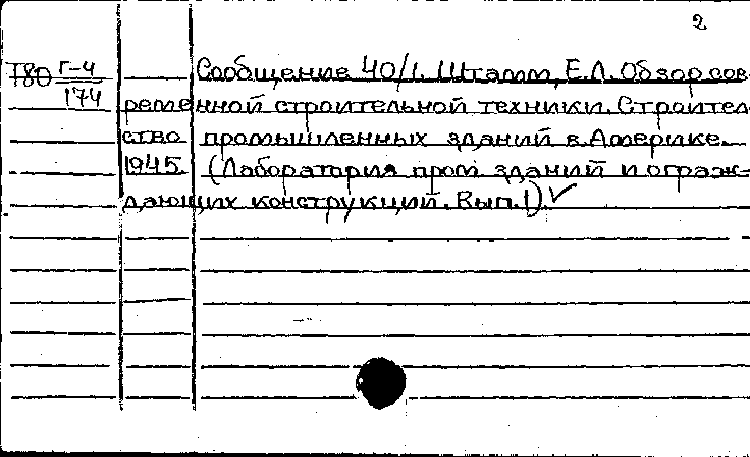 2
Т80 Г-4/174 Сообщение 40/1. Штамм, Е.Л. Обзор сов-
ременной строительной техники. Строитель
ство промышленных зданий в Америке.
1945. (Лаборатория пром. зданий и ограж-
дающих конструкций. Вып. 1). ✓